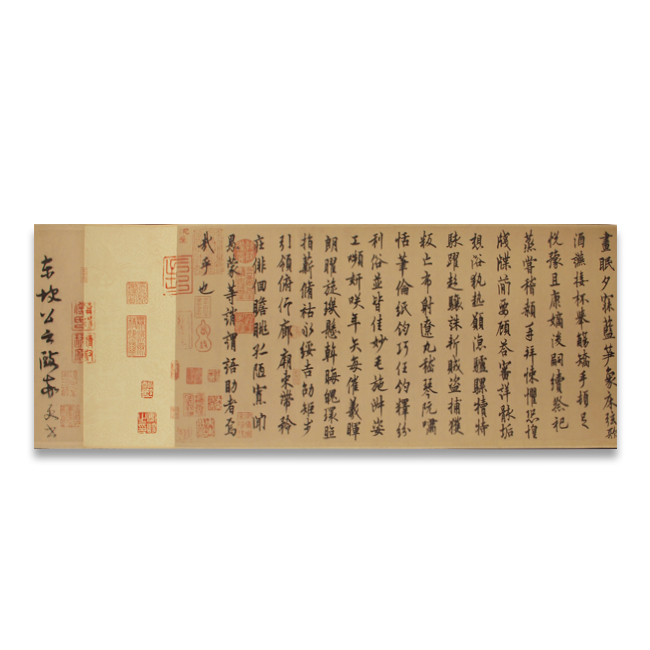 晝眠夕寐藍笋象床弦歌
酒讌接杯舉觴矯手頓足
悅豫且康嫡後嗣續祭祀
蒸嘗稽顙再拜悚懼恐惶
牋牒簡要顧答審詳骸垢
想浴執熱願涼驢騾犢特
駭躍超驤誅斬賊盜捕獲
叛亡布射遼丸嵇琴阮嘯
恬筆倫紙鈞巧任釣釋紛
利俗並皆佳妙毛施淑姿
工嚬妍咲年矢每催羲暉
朗曜琁璣懸斡晦魄環照
指薪脩祜永綏吉劭矩步
引領俯仰廊廟束帶矜
莊徘徊瞻眺孤陋寡聞
愚蒙等誚謂語助者焉
哉乎也
东坡公云